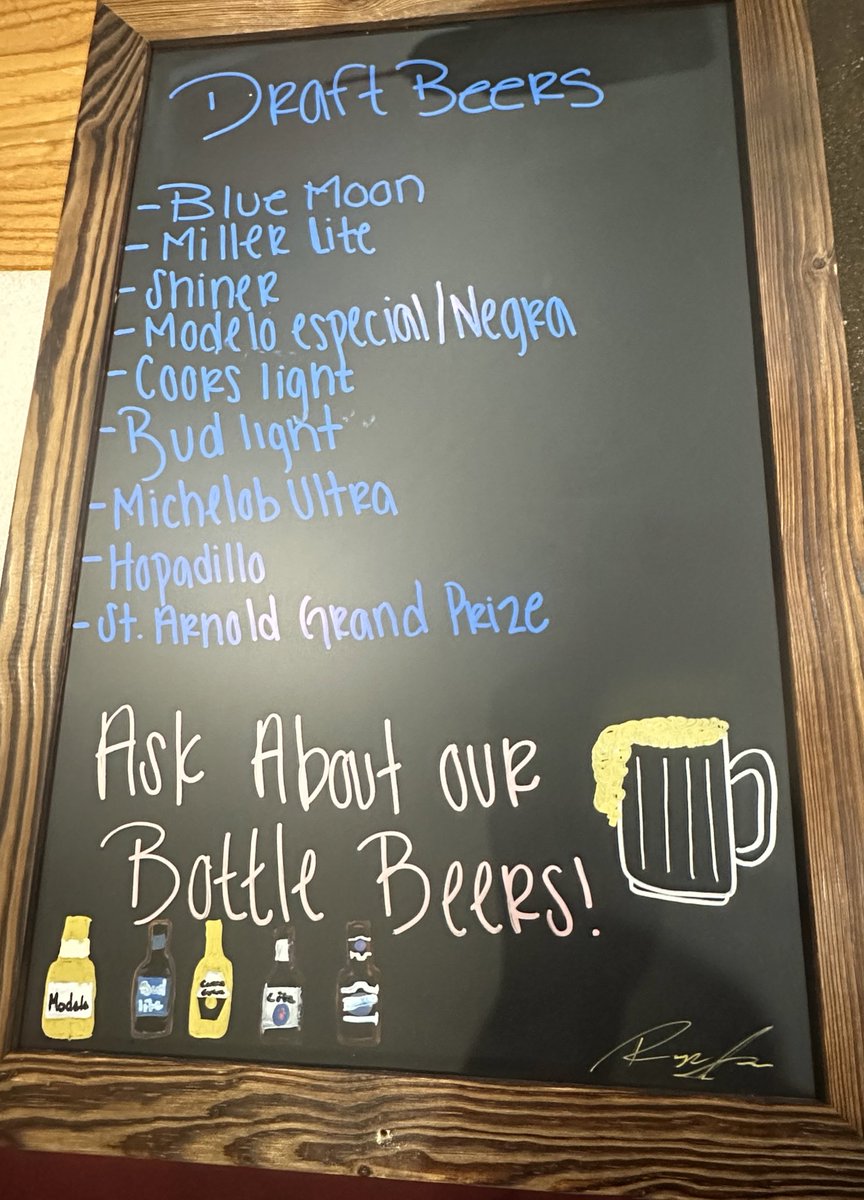 Draft Beers
- Blue Moon
- Miller Lite
- Shiner
- Modelo especial/Negra
- Coors light
- Bud light
- Michelob Ultra
- Hopadillo
- St. Arnold Grand Prize
Ask About our
Bottle Beers!
Modelo
Bud
lite
Lite